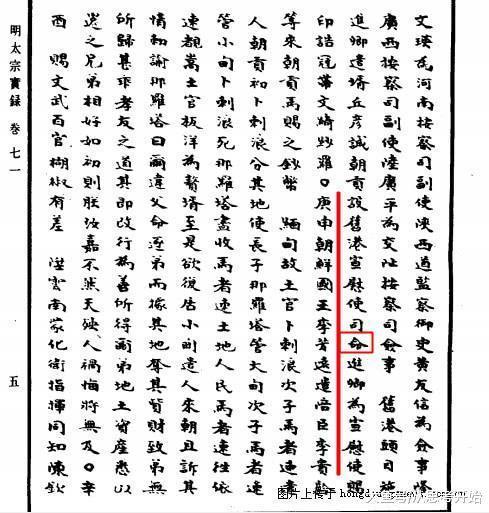 文瑛 河南按察司副使陝西道監察御史黃友信為僉事陞
廣西按察司副使陸廣平為交阯按察司僉事 舊港頭目施
進卿遣壻丘彥誠朝貢設舊港宣慰使司命進卿為宣慰使賜
印誥冠帶文綺紗羅○庚申朝鮮國王李芳遠遣陪臣李貴齡
等來朝貢馬賜之鈔幣 緬甸故土官卜剌浪次子馬者速遣
人朝貢初卜剌浪分其地使長子那羅塔管大甸次子馬者速
管小甸卜剌浪死那羅塔盡收馬者速土地人民馬者速往依
速覩嵩土官板洋為贅壻至是欲復居小甸遣人來朝且訴其
情勅諭那羅塔曰爾違父命逐弟而據其地奪其貲財致弟無
所歸甚乖孝友之道其即改行為善所得爾弟地土貲產悉以
還之兄弟相好如初則朕汝嘉不然天殃人禍悔將無及○辛
酉 賜文武百官楜椒有差 陞雲南蒙化衛指揮同知陳欽
明太宗實錄 卷七一
五
图片上传于